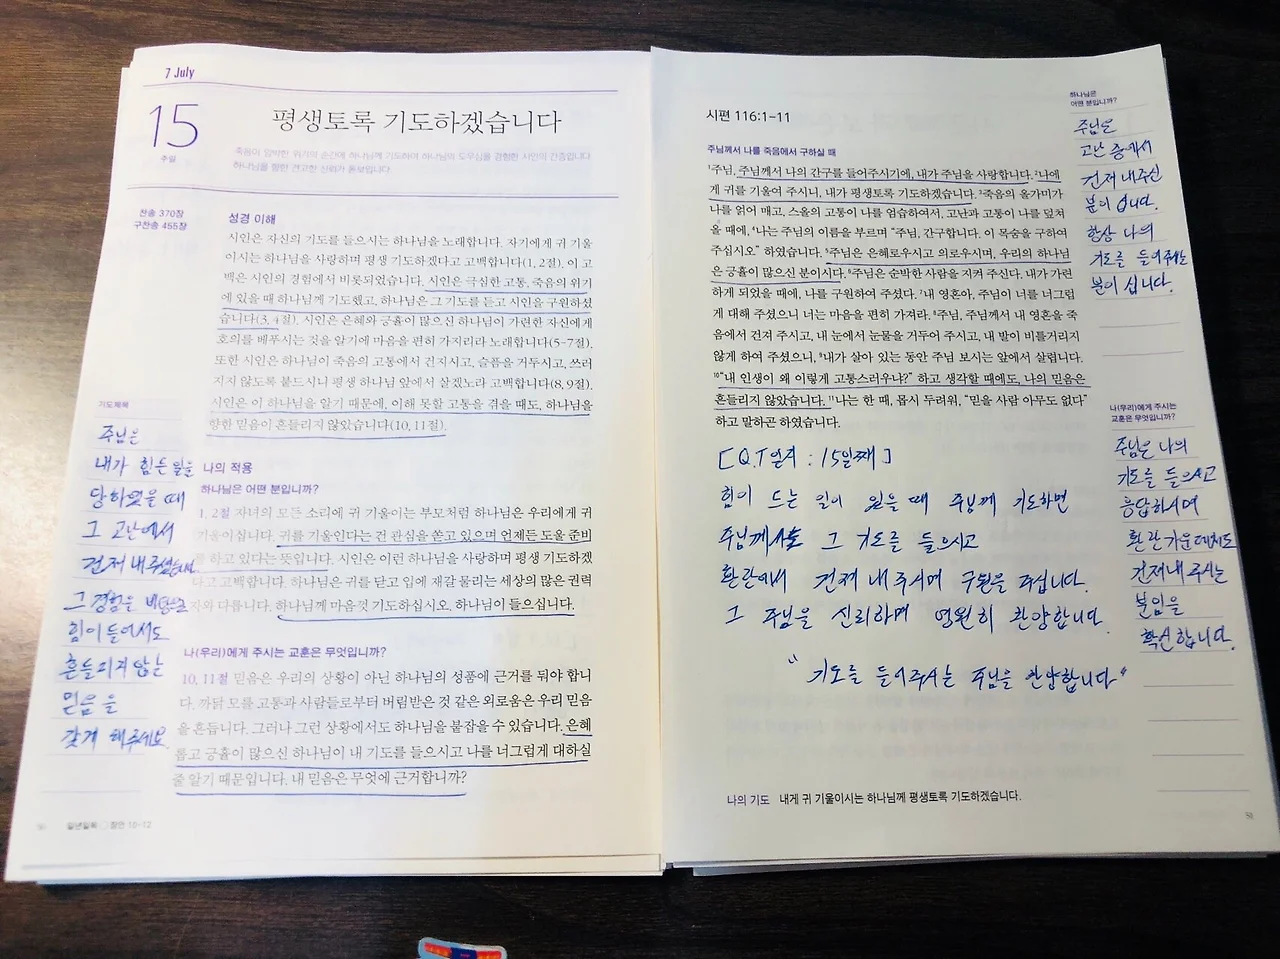 7 July
15
주일
평생토록 기도하겠습니다
죽음이 임박한 위기의 순간에 하나님께 기도하여 하나님의 도우심을 경험한 시인의 간증입니다.
하나님을 향한 견고한 신뢰가 돋보입니다.
찬송 370장
구찬송 455장
성경 이해
시인은 자신의 기도를 들으시는 하나님을 노래합니다. 자기에게 귀 기울
이시는 하나님을 사랑하며 평생 기도하겠다고 고백합니다(1, 2절). 이 고
백은 시인의 경험에서 비롯되었습니다. 시인은 극심한 고통, 죽음의 위기
에 있을 때 하나님께 기도했고, 하나님은 그 기도를 듣고 시인을 구원하셨
습니다(3, 4절). 시인은 은혜와 긍휼이 많으신 하나님이 가련한 자신에게
호의를 베푸시는 것을 알기에 마음을 편히 가지리라 노래합니다(5-7절).
또한 시인은 하나님이 죽음의 고통에서 건지시고, 슬픔을 거두시고, 쓰러
지지 않도록 붙드시니 평생 하나님 앞에서 살겠노라 고백합니다(8, 9절).
시인은 이 하나님을 알기 때문에, 이해 못할 고통을 겪을 때도, 하나님을
향한 믿음이 흔들리지 않았습니다(10, 11절).
기도제목
주님은
내가 힘든 일을
당하였을 때
그 고난에서
건져 내주셨습니다.
그 경험을 바탕으로
힘이 들어서도
흔들리지 않는
믿음을
갖게 해주세요.
나의 적용
하나님은 어떤 분입니까?
1, 2절 자녀의 모든 소리에 귀 기울이는 부모처럼 하나님은 우리에게 귀
기울이십니다. 귀를 기울인다는 건 관심을 쏟고 있으며 언제든 도울 준비
를 하고 있다는 뜻입니다. 시인은 이런 하나님을 사랑하며 평생 기도하겠
다고 고백합니다. 하나님은 귀를 닫고 입에 재갈 물리는 세상의 많은 권력
자와 다릅니다. 하나님께 마음껏 기도하십시오. 하나님이 들으십니다.
나(우리)에게 주시는 교훈은 무엇입니까?
10, 11절 믿음은 우리의 상황이 아닌 하나님의 성품에 근거를 둬야 합니
다. 까닭 모를 고통과 사람들로부터 버림받은 것 같은 외로움은 우리 믿음
을 흔듭니다. 그러나 그런 상황에서도 하나님을 붙잡을 수 있습니다. 은혜
롭고 긍휼이 많으신 하나님이 내 기도를 들으시고 나를 너그럽게 대하실
줄 알기 때문입니다. 내 믿음은 무엇에 근거합니까?
일년일독 잠언 10-12
시편 116:1-11
주님께서 나를 죽음에서 구하실 때
1주님, 주님께서 나의 간구를 들어주시기에, 내가 주님을 사랑합니다. 2나에
게 귀를 기울여 주시니, 내가 평생토록 기도하겠습니다. 3죽음의 올가미가
나를 얽어 매고, 스올의 고통이 나를 엄습하여서, 고난과 고통이 나를 덮쳐
올 때에, 4나는 주님의 이름을 부르며 “주님, 간구합니다. 이 목숨을 구하여
주십시오” 하였습니다. 5주님은 은혜로우시고 의로우시며, 우리의 하나님
은 긍휼이 많으신 분이시다. 6주님은 순박한 사람을 지켜 주신다. 내가 가련
하게 되었을 때에, 나를 구원하여 주셨다. 7내 영혼아, 주님이 너를 너그럽
게 대해 주셨으니 너는 마음을 편히 가져라. 8주님, 주님께서 내 영혼을 죽
음에서 건져 주시고, 내 눈에서 눈물을 거두어 주시고, 내 발이 비틀거리지
않게 하여 주셨으니, 9내가 살아 있는 동안 주님 보시는 앞에서 살렵니다.
10“내 인생이 왜 이렇게 고통스러우냐?” 하고 생각할 때에도, 나의 믿음은
흔들리지 않았습니다. 11나는 한 때, 몹시 두려워, “믿을 사람 아무도 없다”
하고 말하곤 하였습니다.
[Q.T일지 : 15일째]
힘이 드는 일이 있을 때 주님께 기도하면
주님께서는 그 기도를 들으시고
환란에서 건져 내 주시며 구원을 주십니다.
그 주님을 신뢰하며 영원히 찬양합니다.
“기도를 들어주시는 주님을 찬양합니다”
나의 기도 내게 귀 기울이시는 하나님께 평생토록 기도하겠습니다.
하나님은
어떤 분입니까?
주님은
고난 중에서
건져 내주신
분이십니다.
항상 나의
기도를 들어주시는
분이십니다.
나(우리)에게 주시는
교훈은 무엇입니까?
주님은 나의
기도를 들으시고
응답하시며
환란 가운데서도
건져내 주시는
분임을
확신합니다.